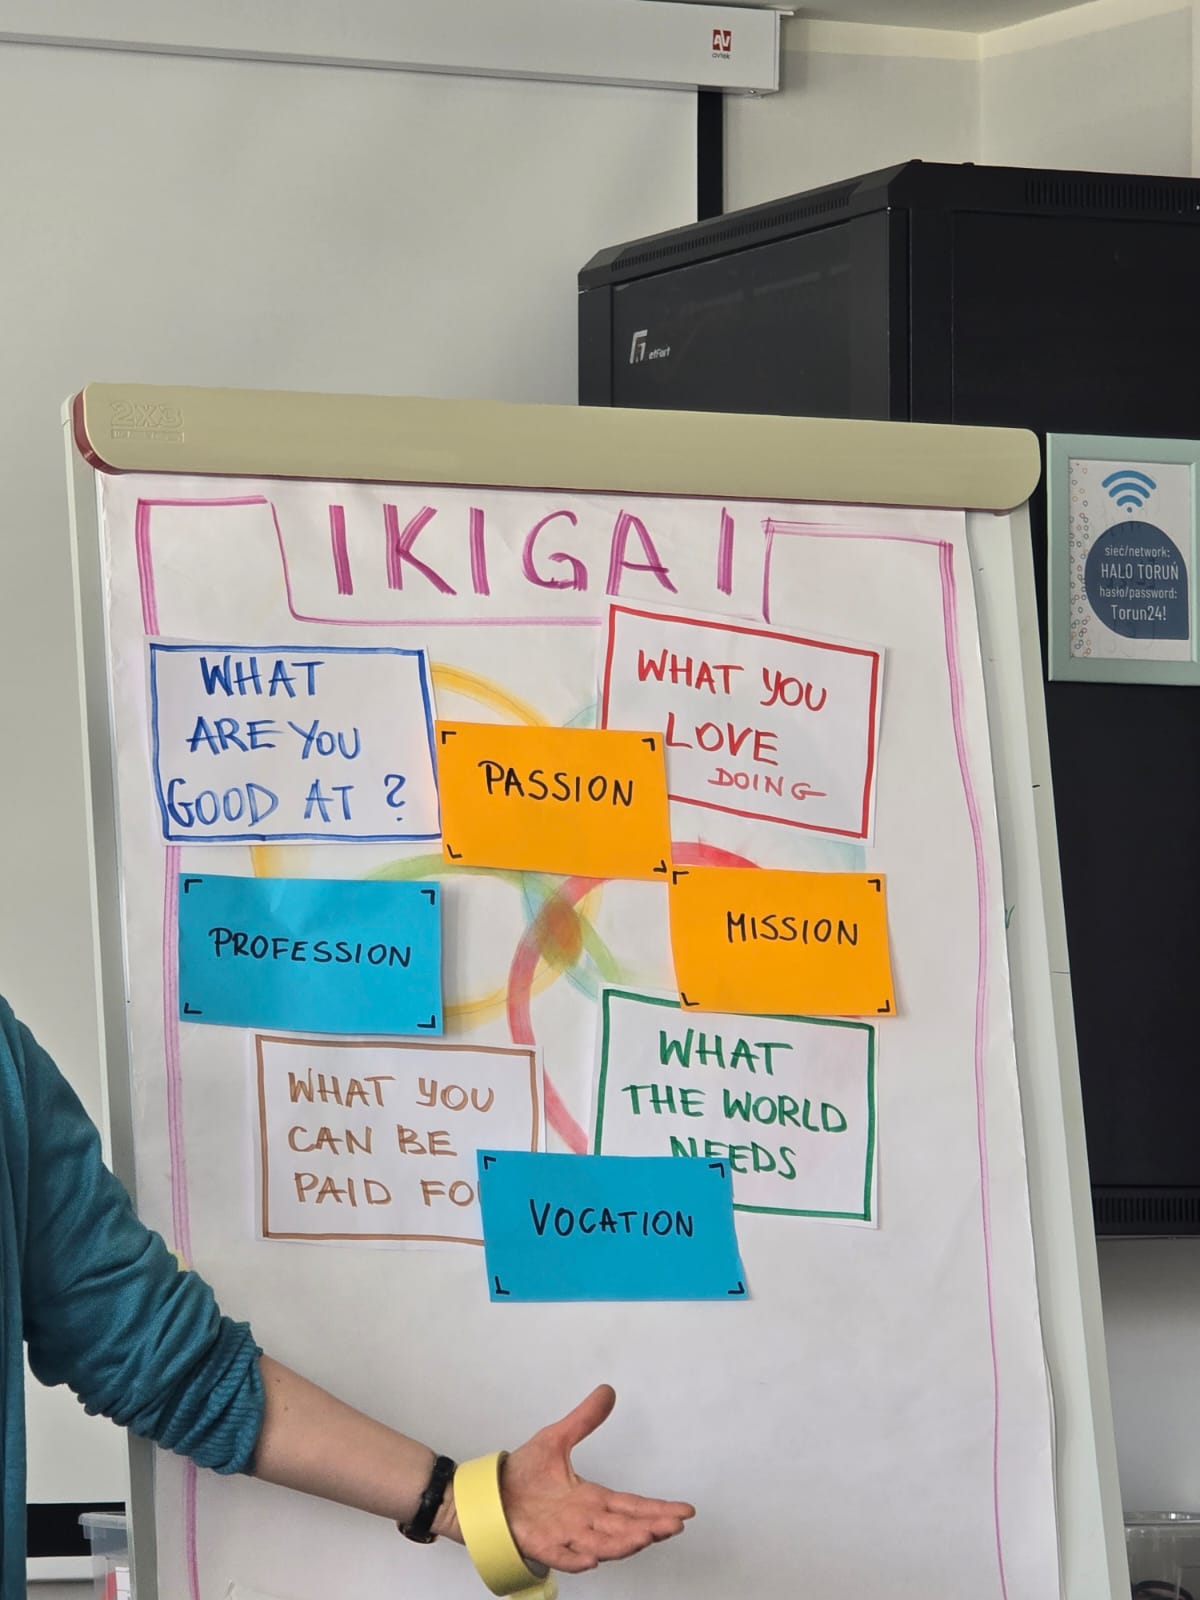 AV
avtek
etFort
2X3
IKIGAI
sieć/network:
HALO TORUŃ
hasło/password:
Torun24!
WHAT
ARE YOU
GOOD AT ?
WHAT YOU
LOVE
DOING
PASSION
PROFESSION
MISSION
WHAT YOU
CAN BE
PAID FO
WHAT
THE WORLD
NEEDS
VOCATION